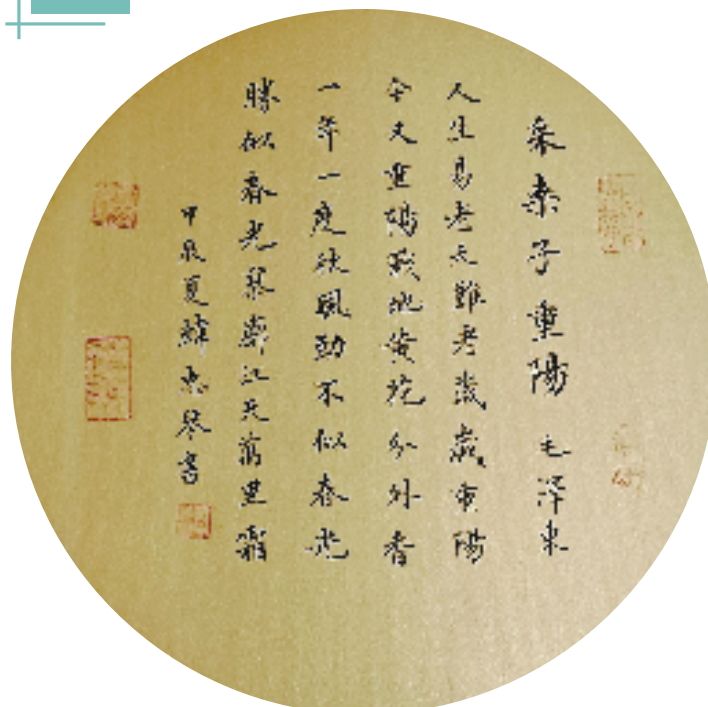 采桑子重陽 毛泽東
人生易老天難老歲歲重陽
今又重陽戰地黄花分外香
一年一度秋風勁不似春光
勝似春光寥廓江天萬里霜
甲辰夏 琴書